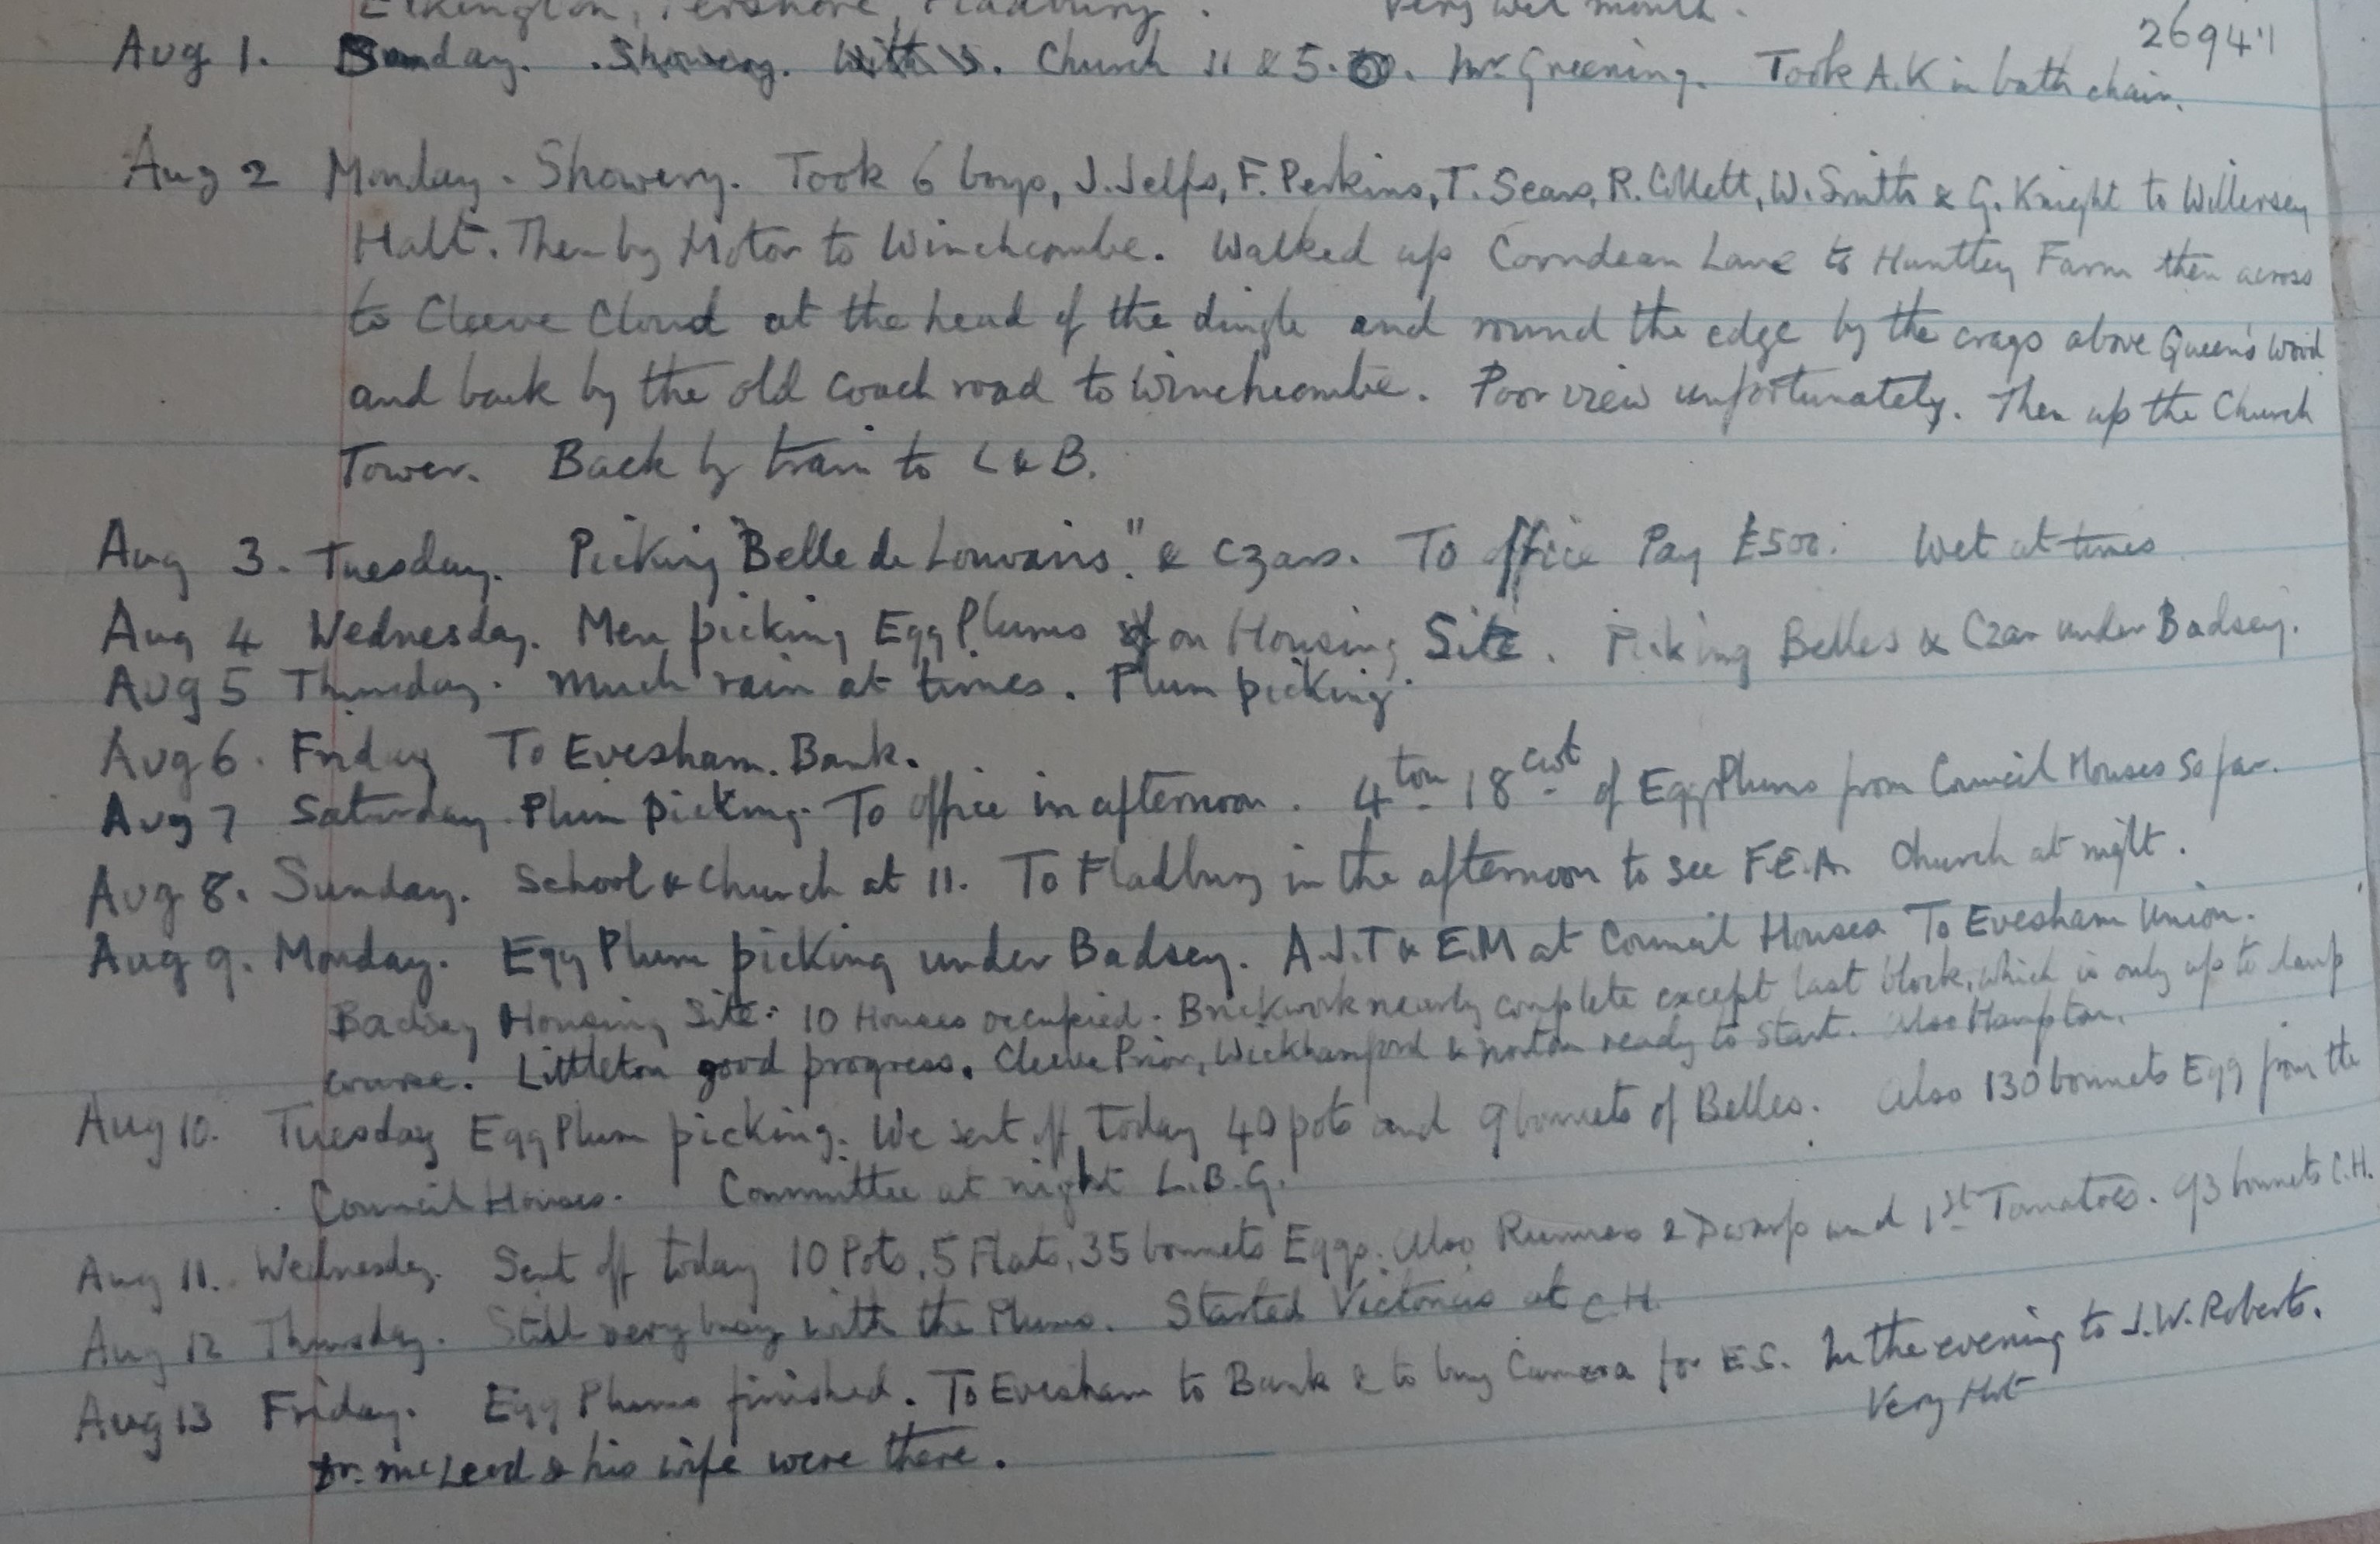 Elkington, Pershore, Fladbury. Very wet month.
26941
Aug 1. Sunday. Showery. Church 11 & 5. Mr Greening. Took A.K in bath chair.
Aug 2 Monday. Showery. Took 6 boys, J. Jelfs, F. Perkins, T. Sears, R. Collett, W. Smith & G. Knight to Willersey
Halt. Then by Motor to Winchcombe. Walked up Corndean Lane to Huntley Farm then across
to Cleeve Cloud at the head of the dingle and round the edge by the crags above Queen's Wood
and back by the old coach road to Winchcombe. Poor view unfortunately. Then up the Church
Tower. Back by train to L & B.
Aug 3. Tuesday. Picking "Belle de Louvains." & Czars. To office Pay £500. Wet at times
Aug 4 Wednesday. Men picking Egg Plums on Housing Site. Picking Belles & Czar under Badsey.
Aug 5 Thursday. Much rain at times. Plum picking.
Aug 6. Friday To Evesham. Bank.
Aug 7 Saturday. Plum picking. To office in afternoon. 4 ton 18 cwt of Egg Plums from Council Houses so far.
Aug 8. Sunday. School & Church at 11. To Fladbury in the afternoon to see F.E.A. Church at night.
Aug 9. Monday. Egg Plum picking under Badsey. A.J.T & E.M at Council Houses To Evesham Union.
Badsey Housing Site. 10 Houses occupied. Brickwork nearly complete except last block, which is only up to damp
course. Littleton good progress. Cleeve Prior, Wickhamford & Norton ready to start. Also Hampton.
Aug 10. Tuesday Egg Plum picking. We sent off today 40 pots and 9 bonnets of Belles. Also 130 bonnets Egg from the
Council Houses. Committee at night L.B.G.
Aug 11. Wednesday. Sent off today 10 Pots, 5 Flats, 35 bonnets Eggs. Also Runners & Dwarfs and 1st Tomatoes. 93 bonnets C.H.
Aug 12 Thursday. Still very busy with the Plums. Started Victorias at C H.
Aug 13 Friday. Egg Plums finished. To Evesham to Bank & to buy Camera for E.S. In the evening to J.W. Roberts.
Dr. McLeod & his wife were there. Very Hot